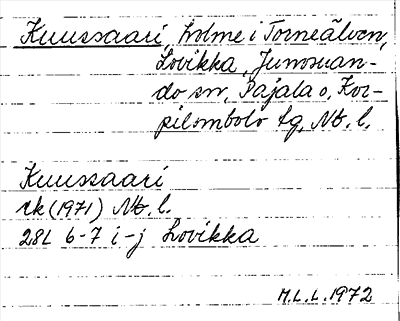 Kuussaari, holme i Torneälven,
Lovikka, Junosuan-
do sn, Pajala o, Kor-
pilombolo tg, Nb. l.
Kuussaari
rk (1971) Nb. l.
28L 6-7 i-j Lovikka
M.L.L. 1972